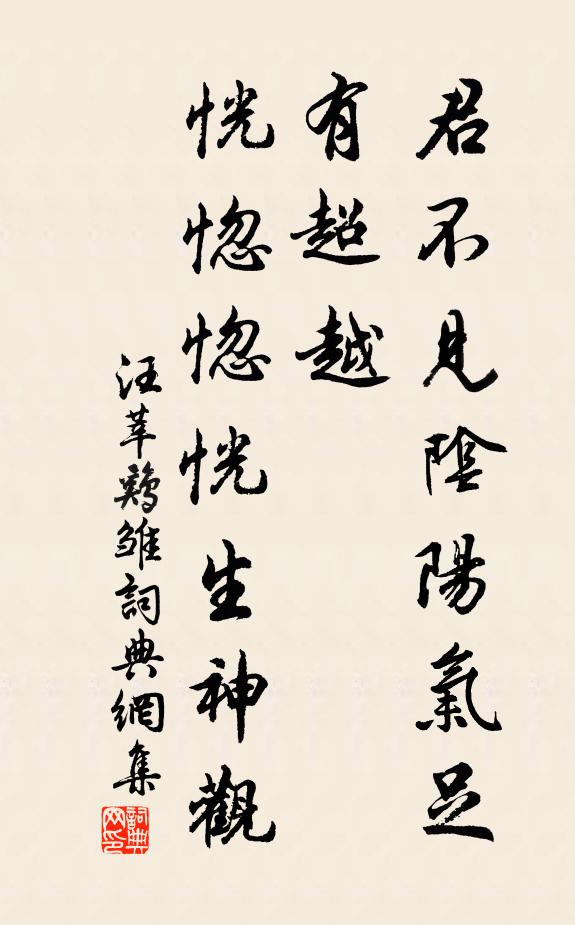 君不見陰陽氣足
有超越
恍惚惚恍生神觀
汪莘鷄雏詞典網集
詞典网印